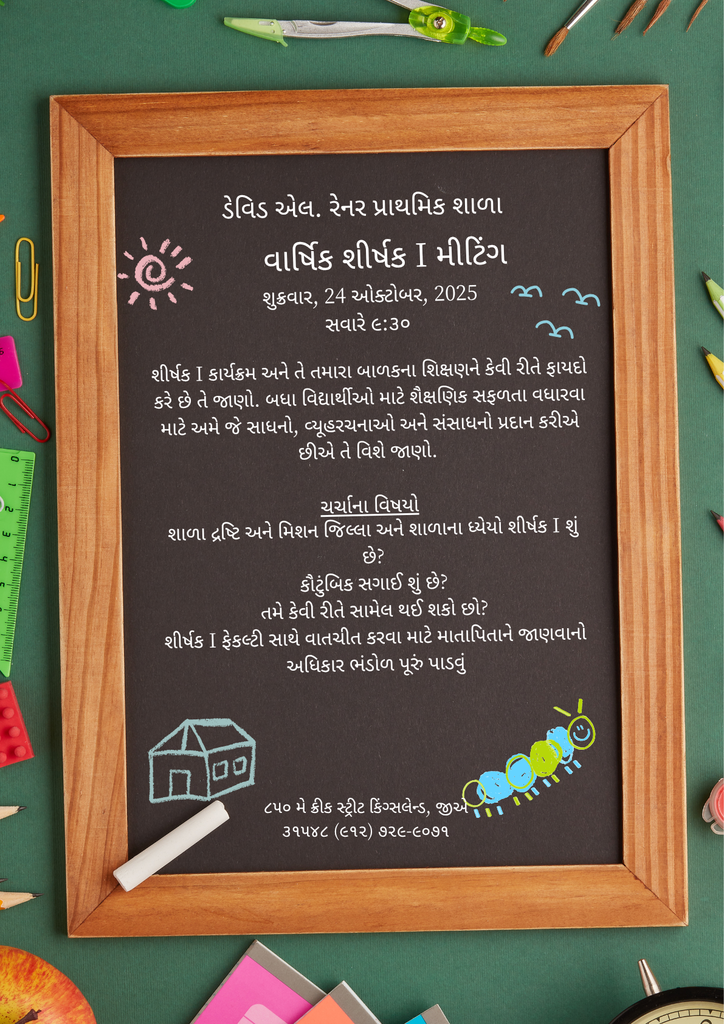 ડેવિડ એલ. રેનર પ્રાથમિક શાળા
વાર્ષિક શીર્ષક I મીટિંગ
શુક્રવાર, 24 ઓક્ટોબર, 2025
સવારે ૯:૩૦
શીર્ષક I કાર્યક્રમ અને તે તમારા બાળકના શિક્ષણને કેવી રીતે ફાયદો
કરે છે તે જાણો. બધા વિદ્યાર્થીઓ માટે શૈક્ષણિક સફળતા વધારવા
માટે અમે જે સાધનો, વ્યૂહરચનાઓ અને સંસાધનો પ્રદાન કરીએ
છીએ તે વિશે જાણો.
ચર્ચાના વિષયો
શાળા દ્રષ્ટિ અને મિશન જિલ્લા અને શાળાના ધ્યેયો શીર્ષક I શું
છે?
કૌટુંબિક સગાઈ શું છે?
તમે કેવી રીતે સામેલ થઈ શકો છો?
શીર્ષક I ફેકલ્ટી સાથે વાતચીત કરવા માટે માતાપિતાને જાણવાનો
અધિકાર ભંડોળ પૂરું પાડવું
૮૫૦ મે ક્રીક સ્ટ્રીટ કિંગ્સલેન્ડ, જીએ
૩૧૫૪૮ (૯૧૨) ૭૨૯-૯૦૭૧